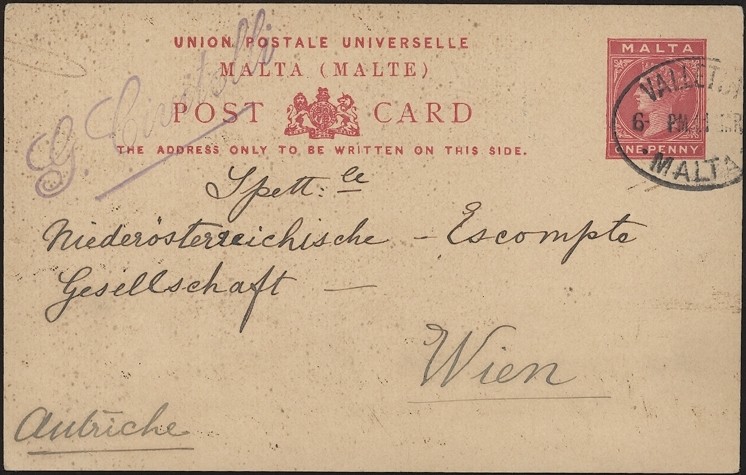 UNION POSTALE UNIVERSELLE
MALTA (MALTE)
POST CARD
THE ADDRESS ONLY TO BE WRITTEN ON THIS SIDE.
MALTA
ONE PENNY
VALLET
6- PM 11
MALTA
G.
Spett. le
Niederösterreichische - Escompte
Gesellschaft -
Wien
Autriche